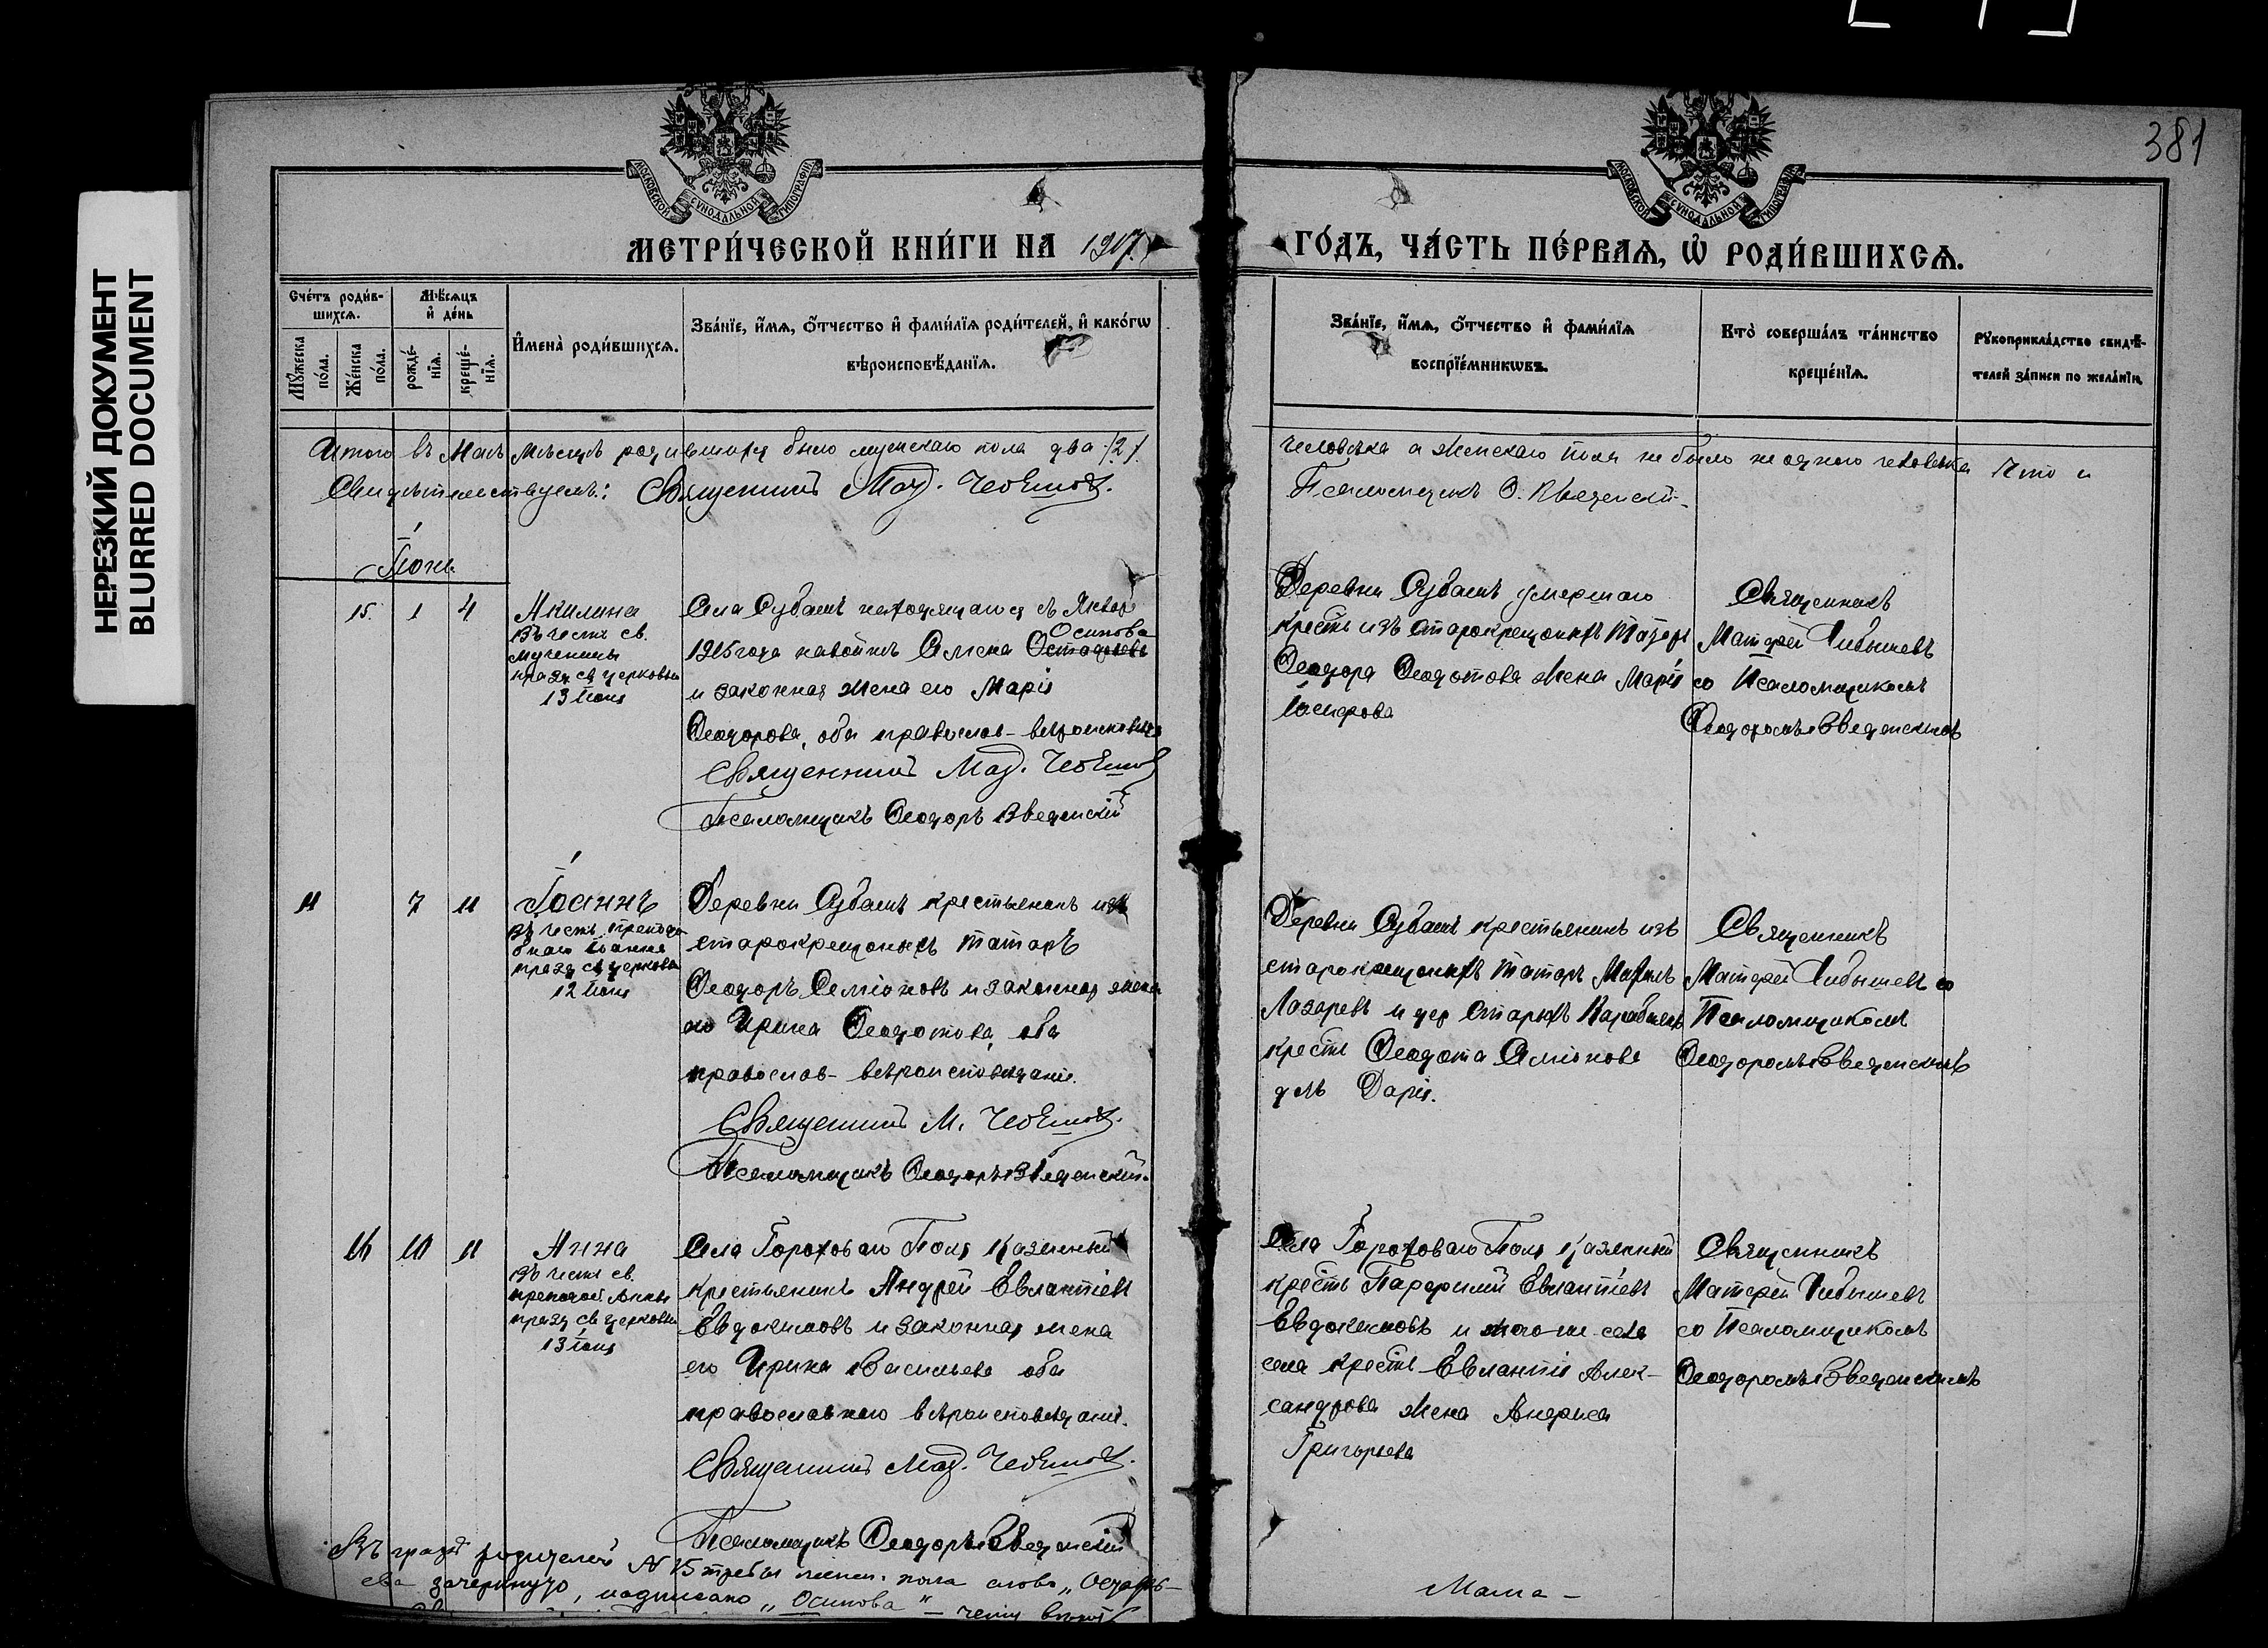 381
НЕРЕЗКИЙ ДОКУМЕНТ
BLURRED DOCUMENT
МОСКОВСКОЙ СУНОДАЛЬНОЙ ТИПОГРАФІИ
МОСКОВСКОЙ СУНОДАЛЬНОЙ ТИПОГРАФІИ
МЕТРИ́ЧЕСКОЙ КНИ́ГИ НА 1917
ГО́ДЪ, ЧА́СТЬ ПЕ́РВАЯ, Ѡ҆ РОДИ́ВШИХСЯ.
Сче́тъ роди́в-
шихся.
Мѣ́сяцъ
и҆ де́нь
Мꙋ́жеска
по́ла.
Же́нска
по́ла.
рожде́-
нїя.
креще́-
нїя.
И҆мена̀ роди́вшихся.
Зва́нїе, и҆́мя, ѻ҆́тчество и҆ фами́лїя роди́телей, и҆ како́гѡ
вѣроисповѣ́данїя.
Зва́нїе, и҆́мя, ѻ҆́тчество и҆ фами́лїя
воспрїе́мникѡвъ.
Кто̀ соверша́лъ та́инство
креще́нїя.
Рꙋкоприкла́дство свидѣ́-
телей за́писи по жела́нїю.
Итого въ Маѣ мѣсяцѣ родившихся было мужскаго пола два /2/
человѣка а женскаго пола не было не одного человѣка Что и
Свидѣтельствуемъ: Священникъ Маѳ.
Псаломщикъ Ѳ. Введенскій
Іюнь
15. 1 4
Акилина
Въ честь св.
мученицы
празд св церковью
13 Іюня
Села Субашъ находящагося съ Январ
1915 года на войнѣ Осипова
и законная жена его Марія
Ѳеодорова, оба православ- вѣроисповѣд
Священникъ Маѳ.
Псаломщикъ Ѳеодоръ Введенскій
Деревни Субашъ умершаго
крест изъ старокрещеныхъ татаръ
Ѳеодора Ѳеодотова жена Марія
Священникъ
Матѳей
со Псаломщикомъ
Ѳеодоромъ Введенскимъ
11 7 11
Іоаннъ
Въ честь преподо
бнаго Іоанна
празд св церковью
12 Іюня
Деревни Субашъ крестьянинъ изъ
старокрещеныхъ татаръ
Ѳеодоръ Семіоновъ и законная жена
его Ирина Ѳеодотова, оба
православ- вѣроисповѣданія.
Священникъ М.
Псаломщикъ Ѳеодоръ Введенскій.
Деревни Субашъ крестьянинъ изъ
старокрещеныхъ татаръ
Лазаревъ и дер Старыхъ
крест Ѳеодота Симіонова
дчь Дарія.
Священникъ
Матѳей со
Псаломщикомъ
Ѳеодоромъ Введенскимъ
16 10 11
Анна
Въ честь св.
препод Анны
празд св церковью
13 Іюня
Села Гороховаго Поля казенный
крестьянинъ Андрей Евлантіевъ
Евдокимовъ и законная жена
его Ирина Васильева оба
православнаго вѣроисповѣданія.
Священникъ Маѳ.
Псаломщикъ Ѳеодоръ Введенскій
Села Гороховаго Поля казенный
крест Парфилій Евлантіевъ
Евдокимовъ и того же села
села крест Евлантія Алек-
сандрова жена Анфиса
Григорьева
Священникъ
Матѳей
со Псаломщикомъ
Ѳеодоромъ Введенскимъ
Въ графѣ родителей № 15 требы женск. пола слово
зачеркнуто, надписано „Осипова" – чему вѣрить